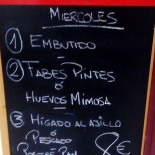 MIERCOLES
1 EMBUTIDO
2 FABES PINTES
ó
HUEVOS MIMOSA
3 HIGADO AL AJILLO
ó
PESCADO
8€